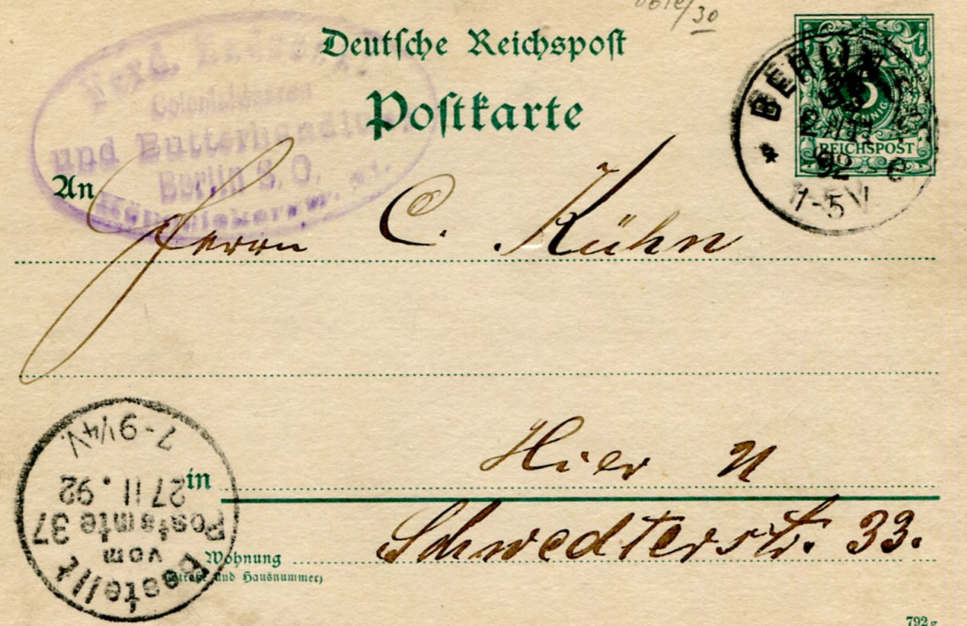 Deutsche Reichspost
Postkarte
Colonialwaaren
und Butterhandlung
Berlin S. O.
BERLIN
92
REICHSPOST
An
Herrn C. Kühn
Hier N
in
Schwedterstr. 33.
Wohnung
(Straße und Hausnummer)
Bestellt
vom
Postamte 37
27 11. 92
7-9¼V.
792 g